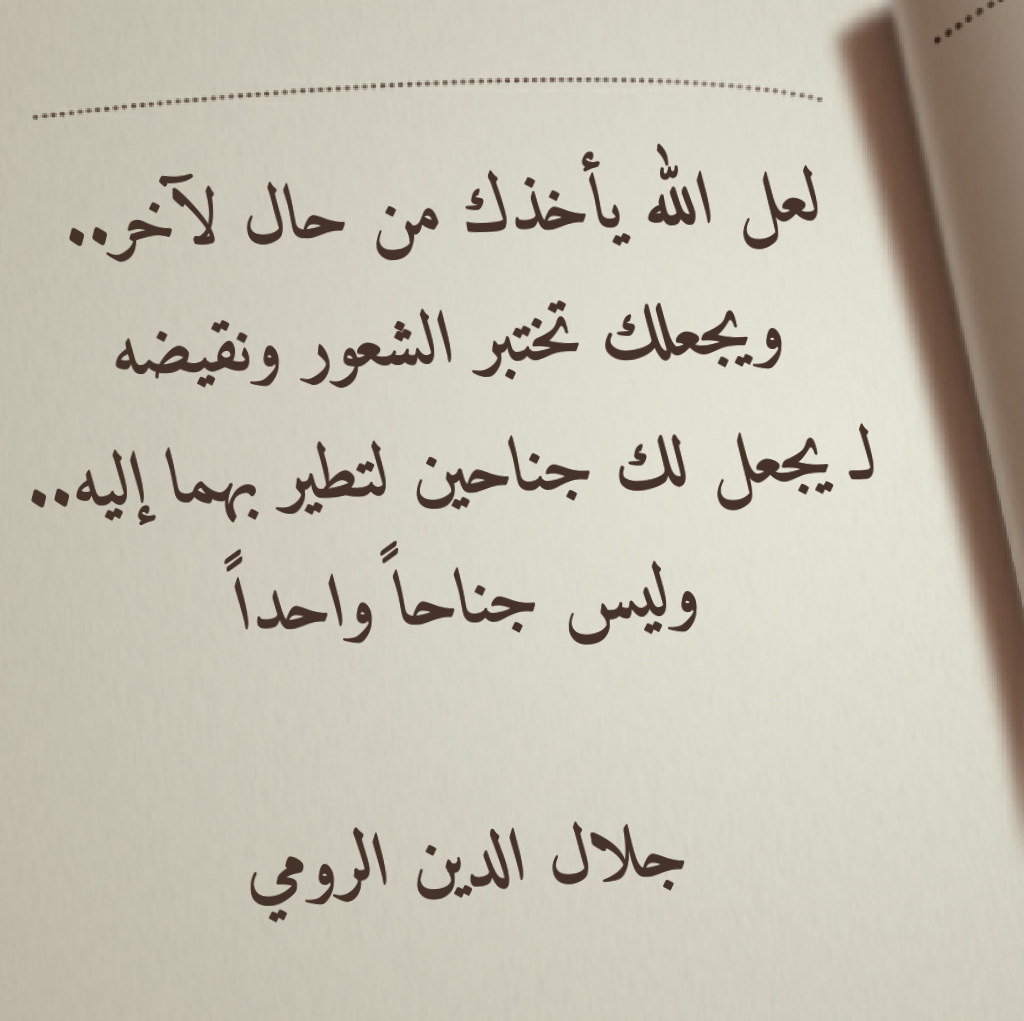 لعل الله يأخذك من حال لآخر..
ويجعلك تختبر الشعور ونقيضه
لـ يجعل لك جناحين لتطير بهما إليه..
وليس جناحاً واحداً
جلال الدين الرومي